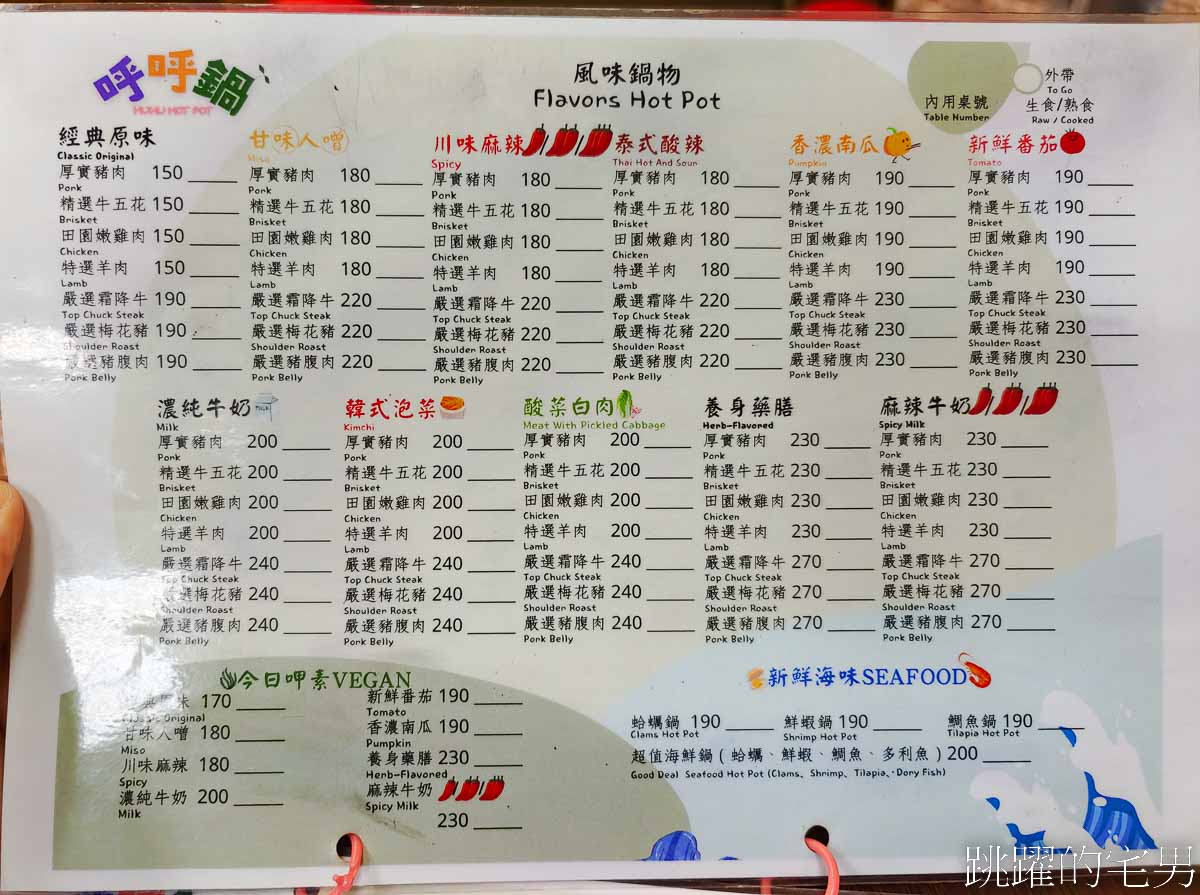 呼呼鍋
HUHU HOT POT
風味鍋物
Flavors Hot Pot
內用桌號
Table Number
外帶
To Go
生食/熟食
Raw / Cooked
經典原味
Classic Original
厚實豬肉 150
Pork
精選牛五花 150
Brisket
田園嫩雞肉 150
Chicken
特選羊肉 150
Lamb
嚴選霜降牛 190
Top Chuck Steak
嚴選梅花豬 190
Shoulder Roast
嚴選豬腹肉 190
Pork Belly
甘味人噌
Miso
厚實豬肉 180
Pork
精選牛五花 180
Brisket
田園嫩雞肉 180
Chicken
特選羊肉 180
Lamb
嚴選霜降牛 220
Top Chuck Steak
嚴選梅花豬 220
Shoulder Roast
嚴選豬腹肉 220
Pork Belly
川味麻辣
Spicy
厚實豬肉 180
Pork
精選牛五花 180
Brisket
田園嫩雞肉 180
Chicken
特選羊肉 180
Lamb
嚴選霜降牛 220
Top Chuck Steak
嚴選梅花豬 220
Shoulder Roast
嚴選豬腹肉 220
Pork Belly
泰式酸辣
Thai Hot And Sour
厚實豬肉 180
Pork
精選牛五花 180
Brisket
田園嫩雞肉 180
Chicken
特選羊肉 180
Lamb
嚴選霜降牛 220
Top Chuck Steak
嚴選梅花豬 220
Shoulder Roast
嚴選豬腹肉 220
Pork Belly
香濃南瓜
Pumpkin
厚實豬肉 190
Pork
精選牛五花 190
Brisket
田園嫩雞肉 190
Chicken
特選羊肉 190
Lamb
嚴選霜降牛 230
Top Chuck Steak
嚴選梅花豬 230
Shoulder Roast
嚴選豬腹肉 230
Pork Belly
新鮮番茄
Tomato
厚實豬肉 190
Pork
精選牛五花 190
Brisket
田園嫩雞肉 190
Chicken
特選羊肉 190
Lamb
嚴選霜降牛 230
Top Chuck Steak
嚴選梅花豬 230
Shoulder Roast
嚴選豬腹肉 230
Pork Belly
濃純牛奶
Milk
厚實豬肉 200
Pork
精選牛五花 200
Brisket
田園嫩雞肉 200
Chicken
特選羊肉 200
Lamb
嚴選霜降牛 240
Top Chuck Steak
嚴選梅花豬 240
Shoulder Roast
嚴選豬腹肉 240
Pork Belly
韓式泡菜
Kimchi
厚實豬肉 200
Pork
精選牛五花 200
Brisket
田園嫩雞肉 200
Chicken
特選羊肉 200
Lamb
嚴選霜降牛 240
Top Chuck Steak
嚴選梅花豬 240
Shoulder Roast
嚴選豬腹肉 240
Pork Belly
酸菜白肉
Meat With Pickled Cabbage
厚實豬肉 200
Pork
精選牛五花 200
Brisket
田園嫩雞肉 200
Chicken
特選羊肉 200
Lamb
嚴選霜降牛 240
Top Chuck Steak
嚴選梅花豬 240
Shoulder Roast
嚴選豬腹肉 240
Pork Belly
養身藥膳
Herb-Flavored
厚實豬肉 230
Pork
精選牛五花 230
Brisket
田園嫩雞肉 230
Chicken
特選羊肉 230
Lamb
嚴選霜降牛 270
Top Chuck Steak
嚴選梅花豬 270
Shoulder Roast
嚴選豬腹肉 270
Pork Belly
麻辣牛奶
Spicy Milk
厚實豬肉 230
Pork
精選牛五花 230
Brisket
田園嫩雞肉 230
Chicken
特選羊肉 230
Lamb
嚴選霜降牛 270
Top Chuck Steak
嚴選梅花豬 270
Shoulder Roast
嚴選豬腹肉 270
Pork Belly
今日呷素VEGAN
經典原味 170
Classic Original
甘味人噌 180
Miso
川味麻辣 180
Spicy
濃純牛奶 200
Milk
新鮮番茄 190
Tomato
香濃南瓜 190
Pumpkin
養身藥膳 230
Herb-Flavored
麻辣牛奶
Spicy Milk
230
新鮮海味SEAFOOD
蛤蠣鍋 190
Clams Hot Pot
鮮蝦鍋 190
Shrimp Hot Pot
鯛魚鍋 190
Tilapia Hot Pot
超值海鮮鍋(蛤蠣、鮮蝦、鯛魚、多利魚)200
Good Deal Seafood Hot Pot (Clams、Shrimp、Tilapia、Dory Fish)
跳躍的宅男